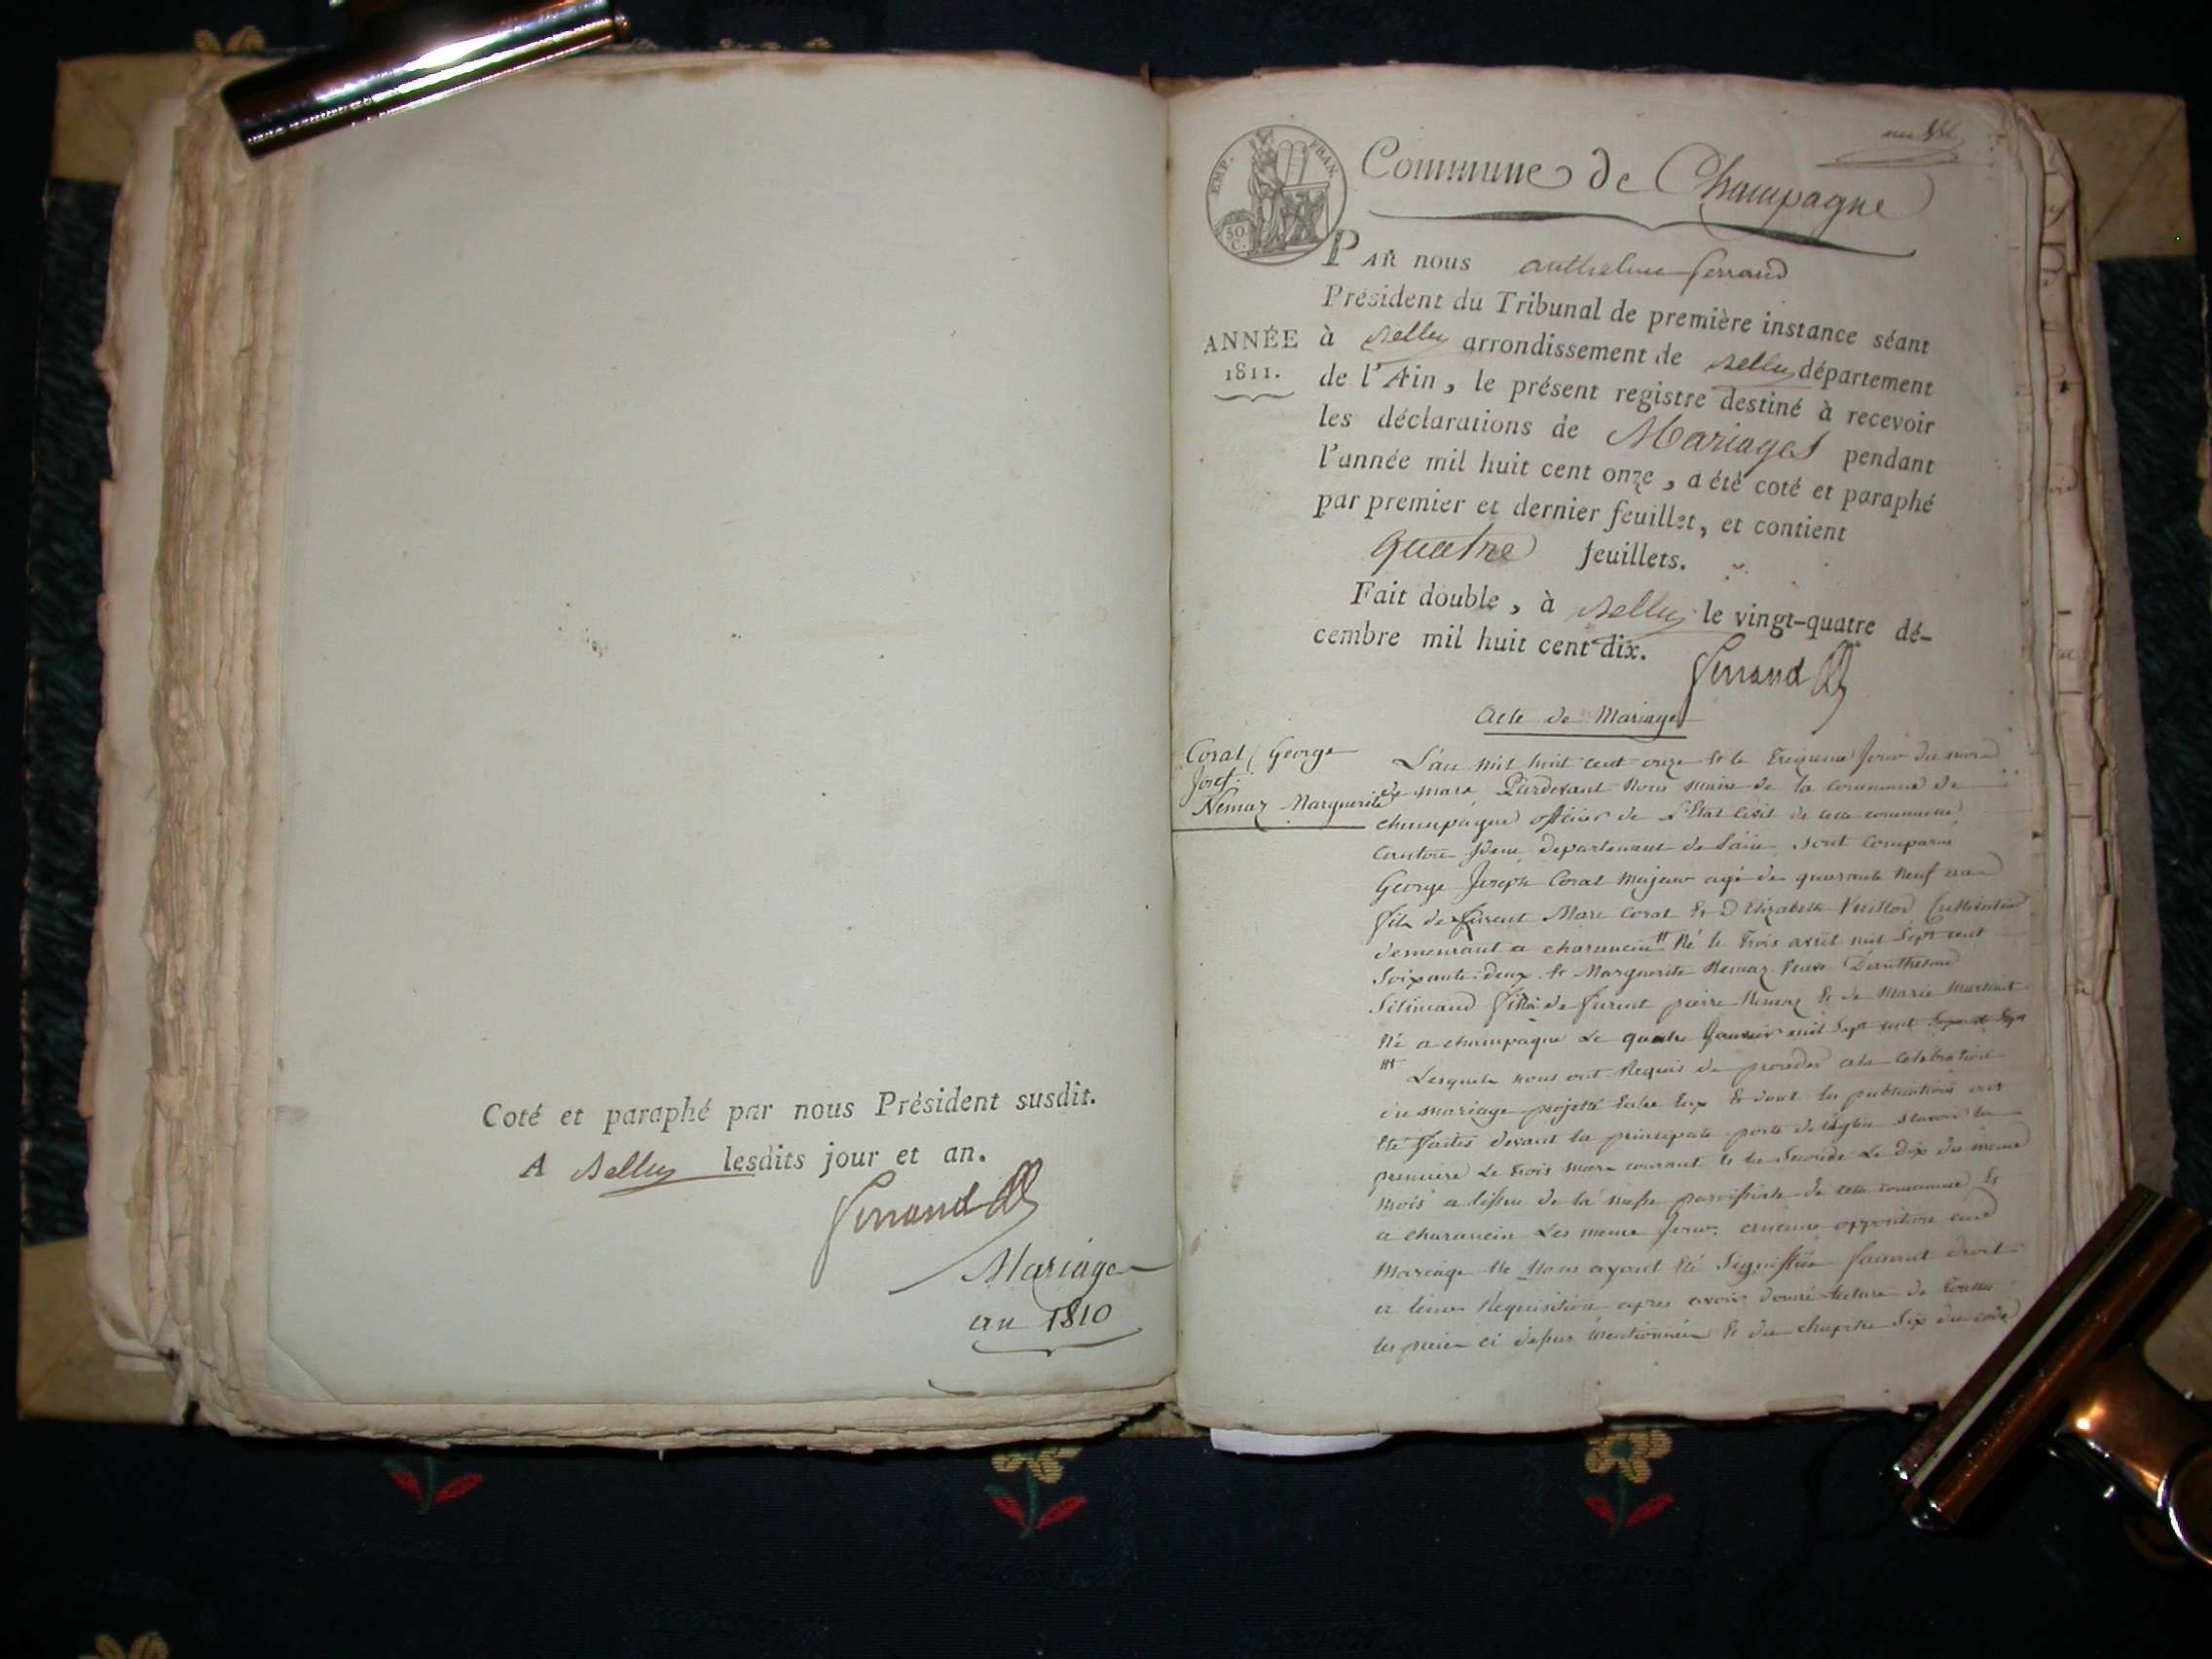 Coté et paraphé par nous Président susdit.
A Belley lesdits jour et an.
Ferrand
Mariage
an 1810
EMP. FRAN.
50 C.
Commune de Champagne
PAR nous anthelme ferrand
Président du Tribunal de première instance séant
ANNÉE 1811.
à Belley arrondissement de Belley département
de l'Ain, le présent registre destiné à recevoir
les déclarations de Mariages pendant
l'année mil huit cent onze, a été coté et paraphé
par premier et dernier feuillet, et contient
quatre feuillets.
Fait double, à Belley le vingt-quatre dé-
cembre mil huit cent dix.
Ferrand
Acte de Mariage
Coral George
Josef.
Nemaz Marguerite
L'an mil huit cent onze & le treizieme jour du mois
de mars Pardevant Nous maire de la commune de
champagne officier de L'Etat Civil de cette commune
departement de Lain, sont comparus
George Joseph Coral Majeur agé de quarante neuf ans
fils de furent Marc Coral & D Elizabeth Vuillod Cultivateur
demeurant a charancin Né le trois avril mil sept cent
soixante deux. & Marguerite Nemaz veuve D'anthelme
fille de furent pierre Nemaz & de Marie Martinet
Né a champagne Le quatre Janvier mil sept cent
Lesquels nous ont Requis de proceder a la celebration
du mariage projetté Entre Eux & dont les publications ont
Eté faites devant la principale porte de léglise scavoir la
premiere Le trois mars courant & la seconde Le dix du meme
mois a lissue de la messe paroissiale de cette commune &
a charancin Les meme jour. aucune opposition aud
Mariage Ne Nous ayant Eté signiffiée faisant droit
a leur Requisition apres avoir donné lecture de toutes
les pieces ci dessus mentionnées & du chapitre six du code